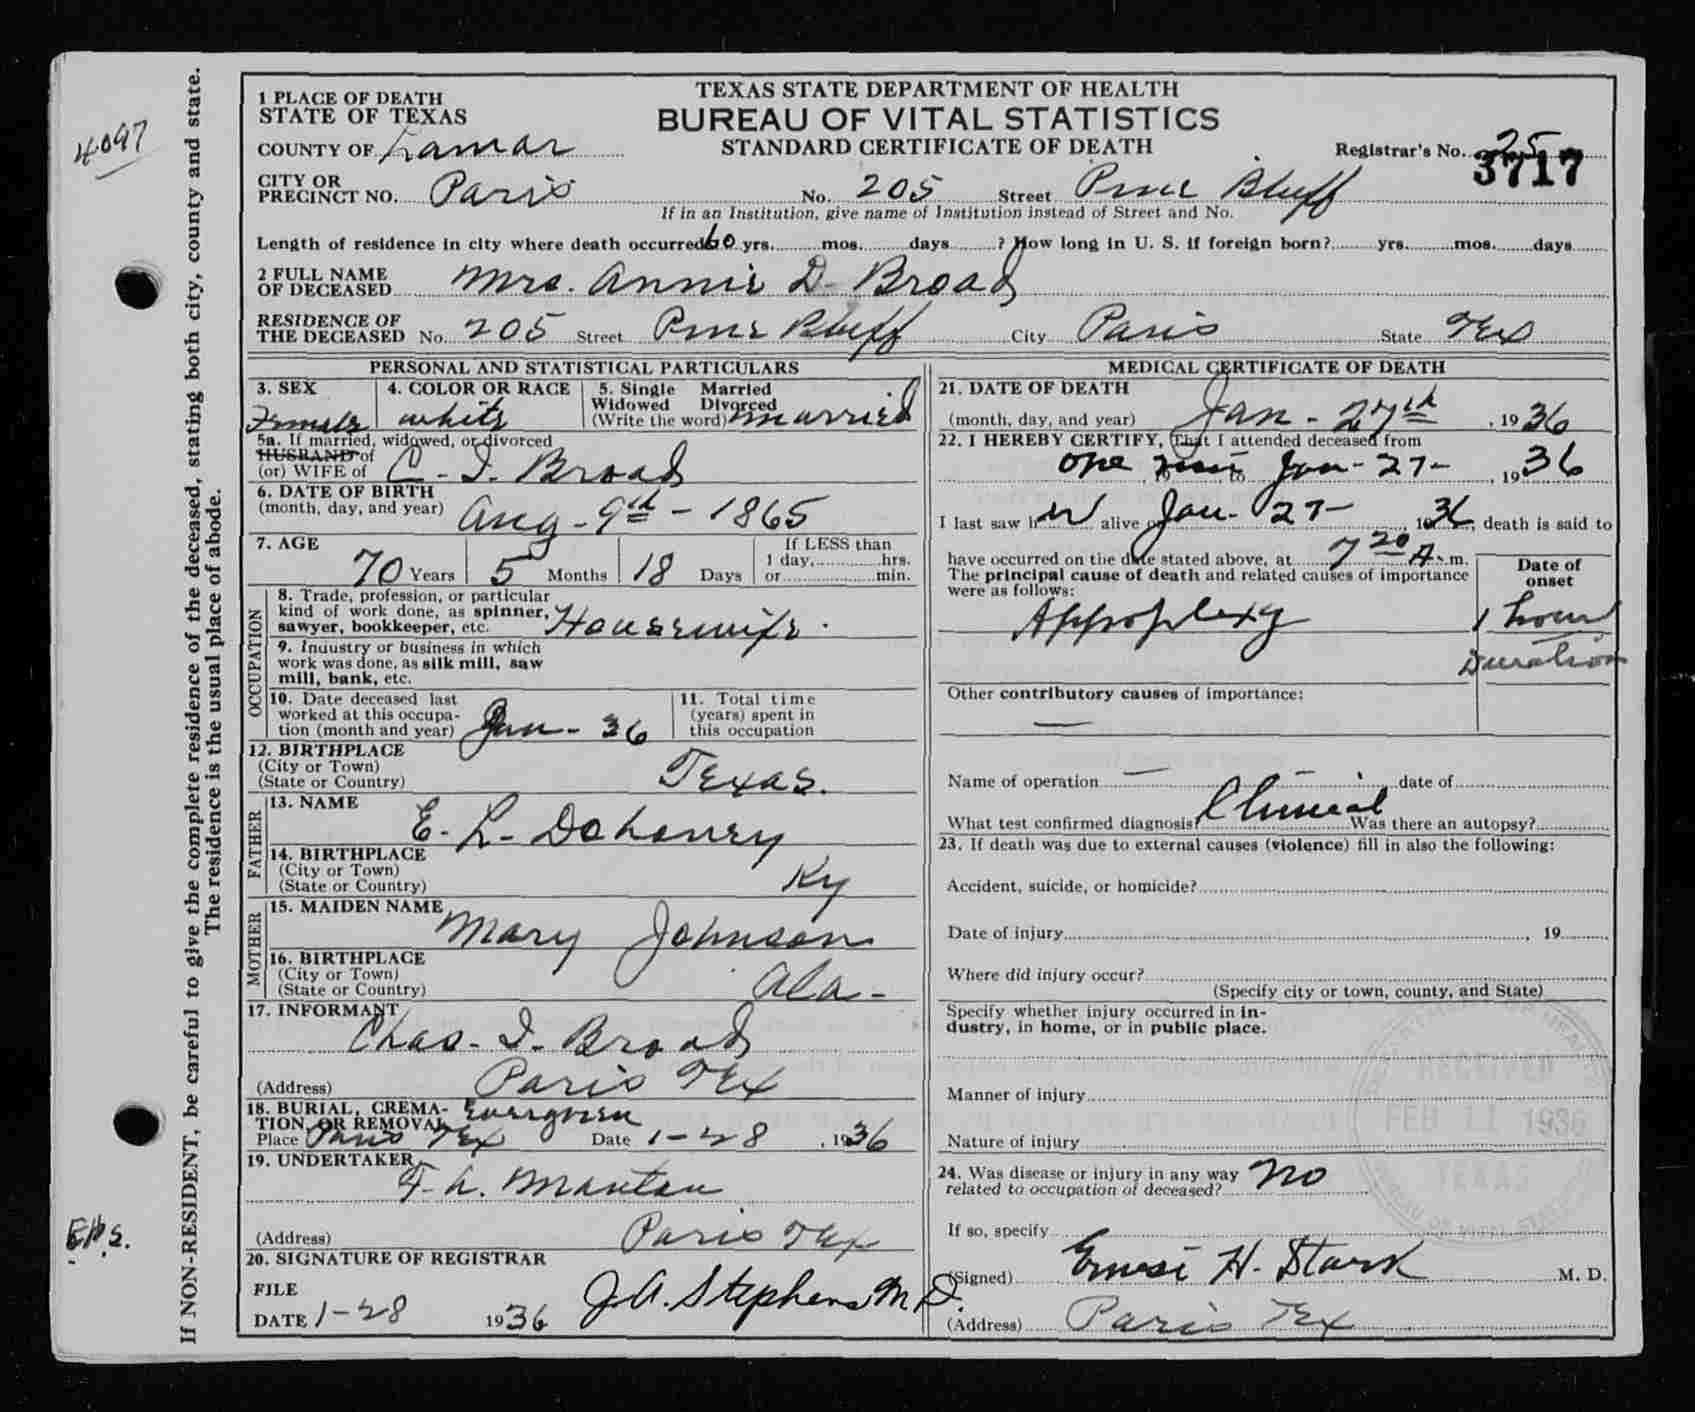 4097
If NON-RESIDENT, be careful to give the complete residence of the deceased, stating both city, county and state.
The residence is the usual place of abode.
TEXAS STATE DEPARTMENT OF HEALTH
BUREAU OF VITAL STATISTICS
STANDARD CERTIFICATE OF DEATH
1 PLACE OF DEATH
STATE OF TEXAS
COUNTY OF Lamar
Registrar's No. 25
3717
CITY OR PRECINCT NO. Paris No. 205 Street Pine Bluff
If in an Institution, give name of Institution instead of Street and No.
Length of residence in city where death occurred 60 yrs. mos. days ? How long in U. S. if foreign born? yrs. mos. days
2 FULL NAME OF DECEASED Mrs. Annie D. Broad
RESIDENCE OF THE DECEASED No. 205 Street Pine Bluff City Paris State Tex
PERSONAL AND STATISTICAL PARTICULARS
3. SEX Female
4. COLOR OR RACE white
5. Single Married Widowed Divorced (Write the word) married
5a. If married, widowed, or divorced
HUSBAND of
(or) WIFE of C. I. Broad
6. DATE OF BIRTH
(month, day, and year) Aug - 9th - 1865
7. AGE 70 Years 5 Months 18 Days If LESS than 1 day, hrs. or min.
OCCUPATION
8. Trade, profession, or particular kind of work done, as spinner, sawyer, bookkeeper, etc. Housewife.
9. Industry or business in which work was done, as silk mill, saw mill, bank, etc.
10. Date deceased last worked at this occupation (month and year) Jan - 36
11. Total time (years) spent in this occupation
12. BIRTHPLACE
(City or Town)
(State or Country) Texas.
FATHER
13. NAME E. L. Dohoney
14. BIRTHPLACE
(City or Town)
(State or Country) Ky
MOTHER
15. MAIDEN NAME Mary Johnson
16. BIRTHPLACE
(City or Town)
(State or Country) Ala -
17. INFORMANT Chas. I. Broad
(Address) Paris Tex
18. BURIAL, CREMATION, OR REMOVAL Evergreen
Place Paris Tex Date 1-28, 1936
19. UNDERTAKER
(Address) Paris Tex
20. SIGNATURE OF REGISTRAR
FILE DATE 1-28 1936 J.A. Stephens M.D.
MEDICAL CERTIFICATE OF DEATH
21. DATE OF DEATH
(month, day, and year) Jan - 27th, 1936
22. I HEREBY CERTIFY, That I attended deceased from
one to Jan - 27 -, 1936
I last saw h alive on Jan - 27 - 1936, death is said to
have occurred on the date stated above, at 7 20 A.m.
The principal cause of death and related causes of importance were as follows:
Date of onset
Appoplexy 1 hour
Duration
Other contributory causes of importance:
—
Name of operation — date of
What test confirmed diagnosis? Clinical Was there an autopsy?
23. If death was due to external causes (violence) fill in also the following:
Accident, suicide, or homicide?
Date of injury , 19
Where did injury occur?
(Specify city or town, county, and State)
Specify whether injury occurred in industry, in home, or in public place.
Manner of injury
Nature of injury
RECEIVED
FEB 11 1936
TEXAS
24. Was disease or injury in any way related to occupation of deceased? No
If so, specify
(Signed) Ernest H. Stark M. D.
(Address) Paris Tex